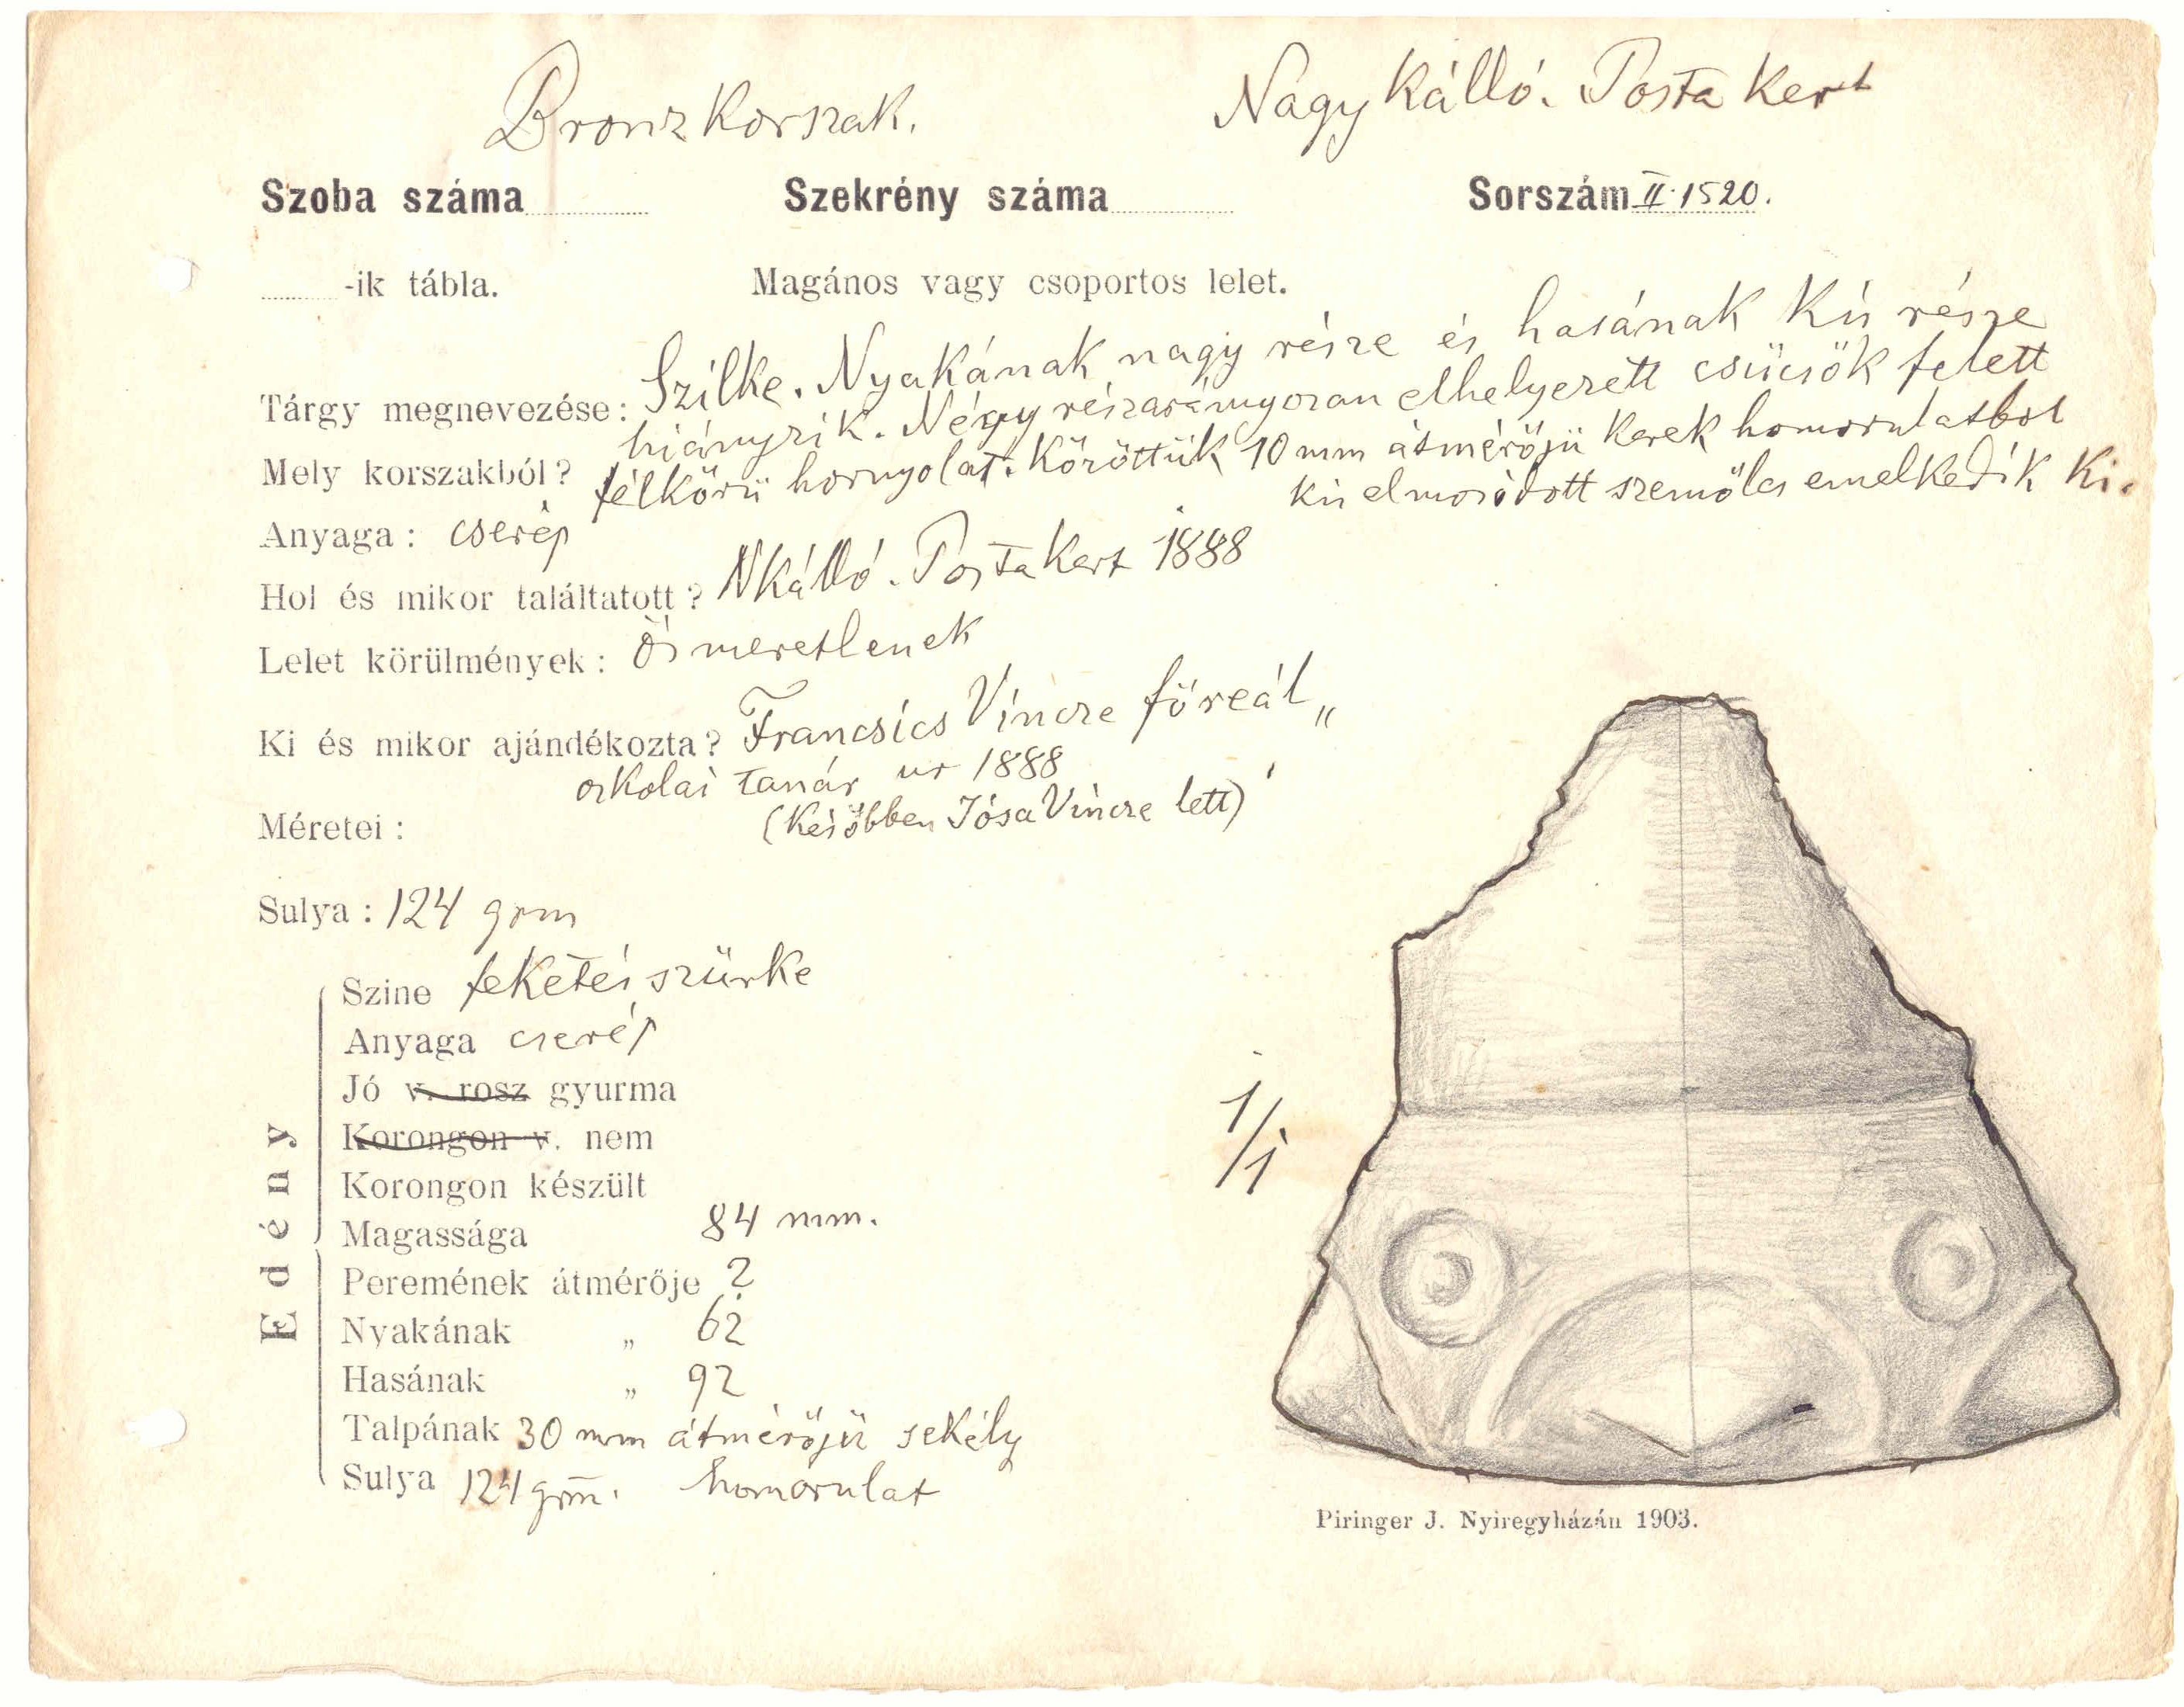 Bronzkorszak.
Nagy Kálló. Posta Kert
Szoba száma
Szekrény száma
Sorszám II. 1520.
-ik tábla.
Magános vagy csoportos lelet.
Tárgy megnevezése: Szilke. Nyakának nagy része és hasának kis része
hiányzik. Négy részarányozan elhelyezett csücsök felett
Mely korszakból? félkörü hornyolat. Köröttük 10 mm átmérőjü kerek homorulatbol
kis elmosódott szemölcs emelkedik ki.
Anyaga: cserép
Hol és mikor találtatott? NKálló. Posta Kert 1888
Lelet körülmények: Ösmeretlenek
Ki és mikor ajándékozta? Francsics Vincze föreál„
oskolai tanár ur 1888
(Későbben Jósa Vincze lett)
Méretei:
Sulya: 124 grm
Edény
Szine feketés szürke
Anyaga cserép
Jó v. rosz gyurma
Korongon v. nem
Korongon készült
Magassága 84 mm.
Peremének átmérője ?
Nyakának „ 62
Hasának „ 92
Talpának 30 mm átmérőjü sekély
homorulat
Sulya 124 grm.
1/1
Piringer J. Nyiregyházán 1903.